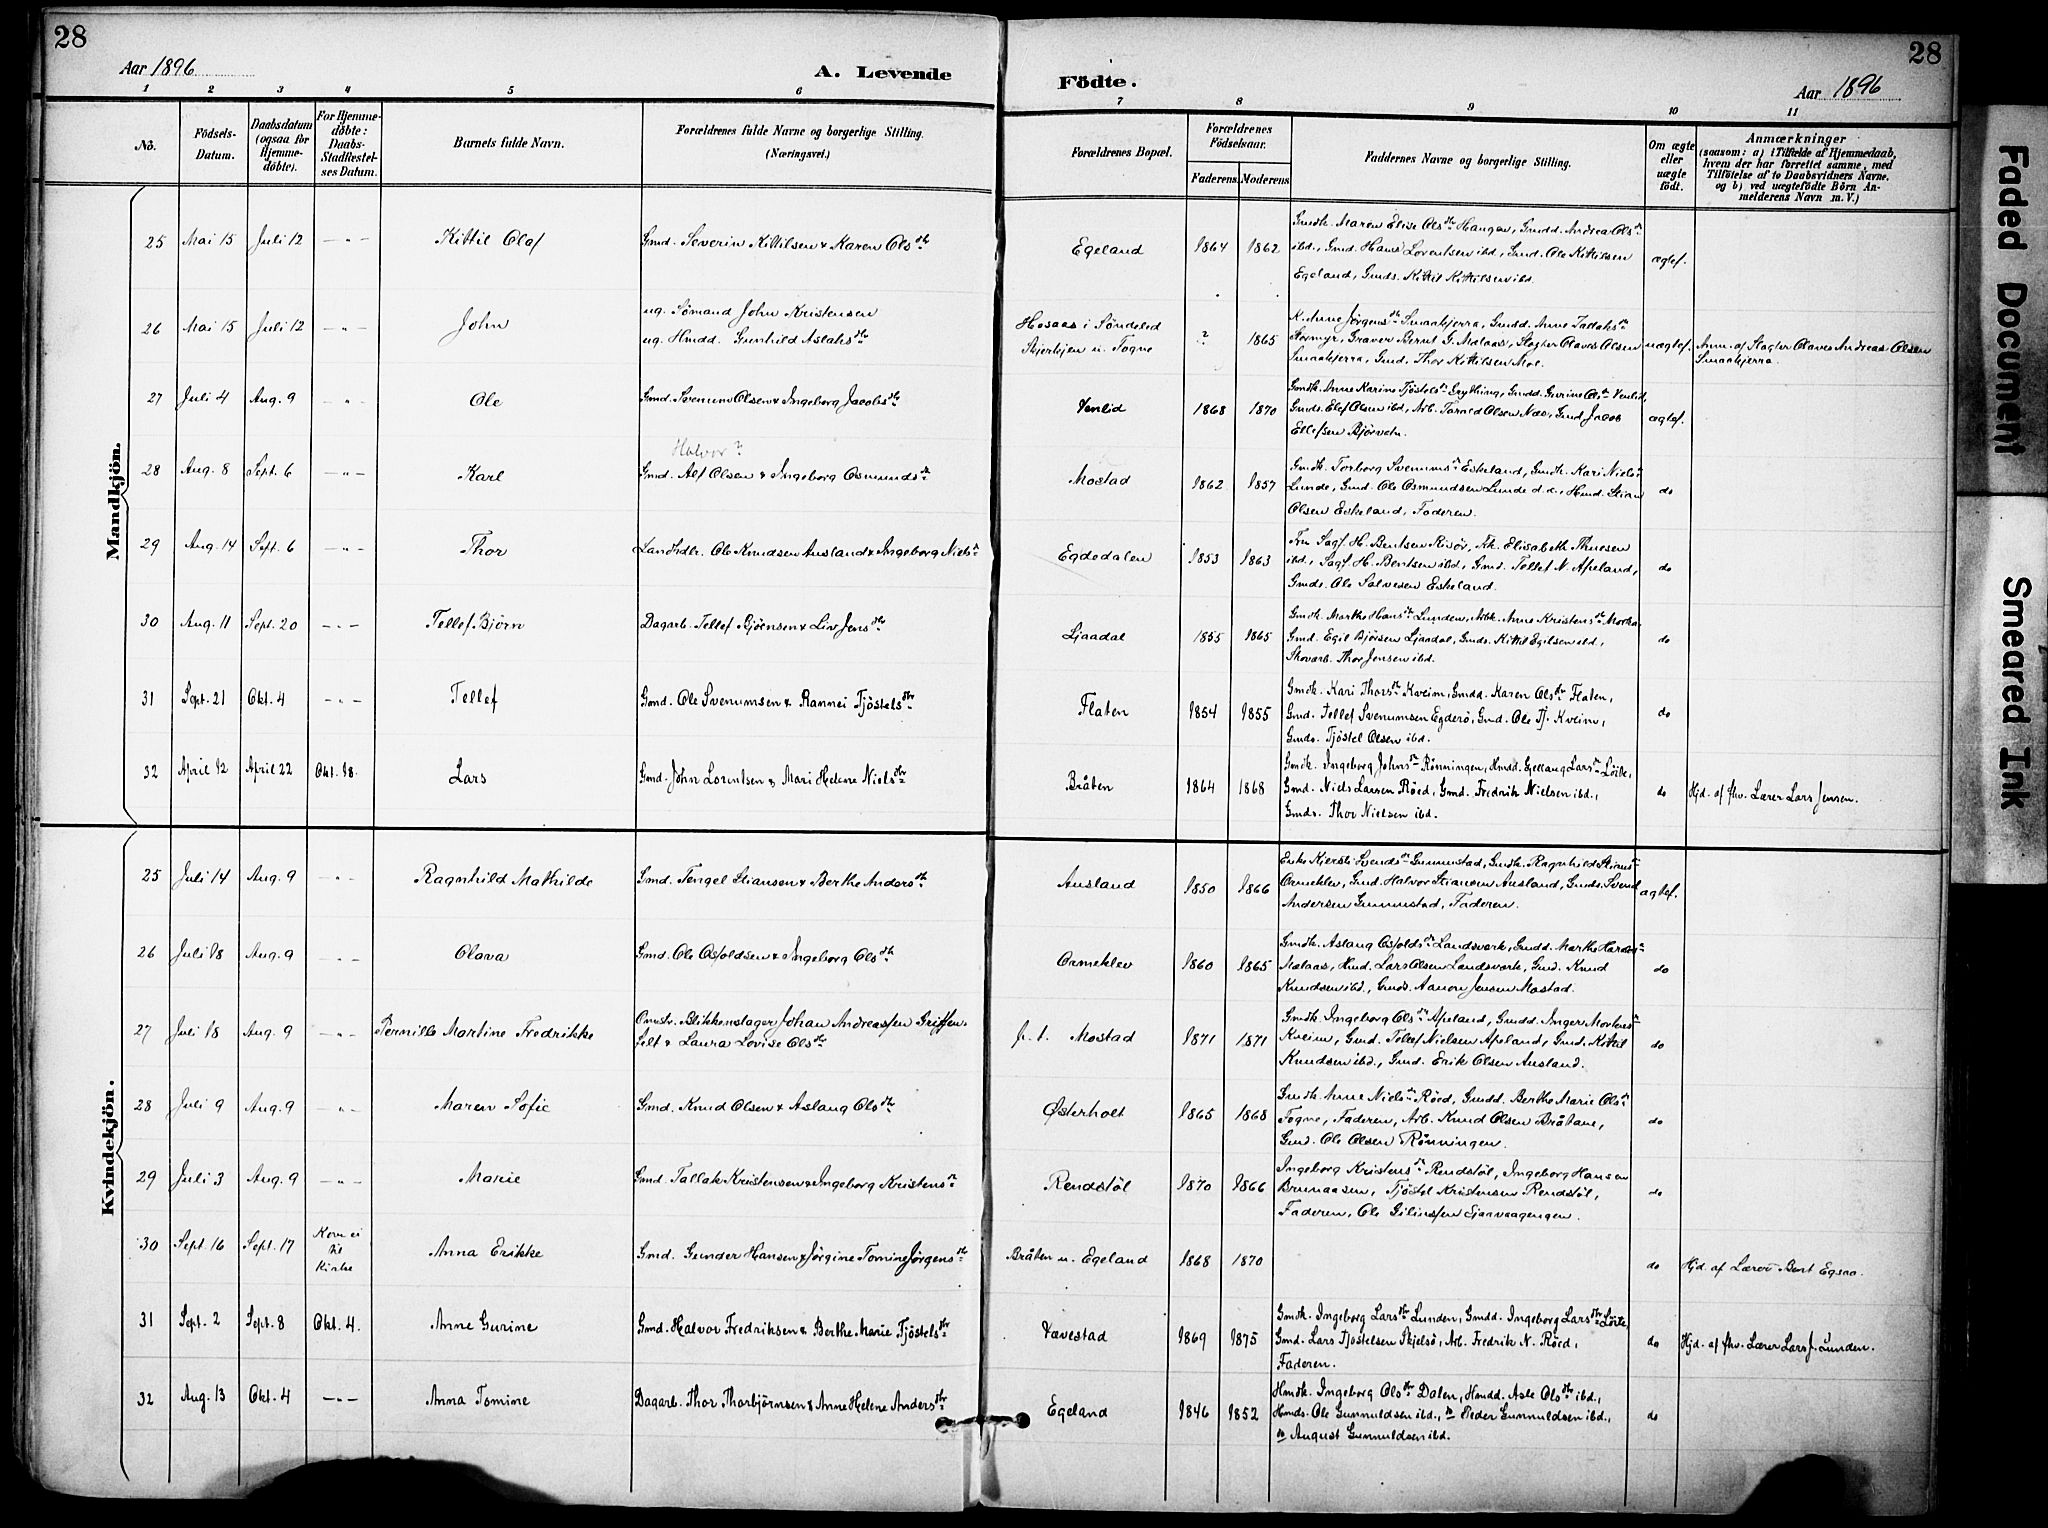 28
28
Aar 1896
A. Levende
Födte.
Aar 1896
1 2 3 4 5 6 7 8 9 10 11
No.
Födsels-Datum.
Daabsdatum (ogsaa for Hjemme-döbte).
For Hjemme-döbte: Daabs-Stadfestel-ses Datum.
Barnets fulde Navn.
Forældrenes fulde Navne og borgerlige Stilling.
(Næringsvei.)
Forældrenes Bopæl.
Forældrenes Födselsaar.
Faderens. Moderens.
Faddernes Navne og borgerlige Stilling.
Om ægte eller uægte födt.
Anmærkninger
(saasom: a) i Tilfælde af Hjemmedaab,
hvem der har forrettet samme, med
Tilföielse af to Daabsvidners Navne,
og b) ved uægtefödte Börn An-
melderens Navn m. V.)
Mandkjön.
25 Mai 15 Juli 12 -"- Kittil Olaf Gmd. Severin Kittilsen & Karen Olsdtr Egeland 1864 1862 Gmdk. Maren Elise Olsdtr Haugen, Gmdd. Andrea Olsdtr
ibd., Gmd. Hans Lorentsen ibd., Gmd. Ole Kittilsen
Egeland, Gmds. Kittil Kittilsen ibd. ægtef.
26 Mai 15 Juli 12 -"- John ug. Sömand John Kristensen
ug. Hmdd. Gunhild Aslaksdtr Hosaas i Söndeled
u. Togne ? 1865 K. Anne Jörgensdtr Smaakjerra, Gmdd. Anne
Stormyr, Graver Bernt G. Mölaas, Slagter Olaves Olsen
Smaakjerra, Gmd. Thor Kittilsen Moe. uægtef. Anm. af Slagter Olaves Andreas Olsen
Smaakjerra.
27 Juli 4 Aug. 9 -"- Ole Gmd. Svenum Olsen & Ingeborg Jacobsdtr Venlid 1868 1870 Gmdk. Anne Karine Tjöstelsdtr Grytting, Gmdd. Gurine Olsdtr Venlid,
Gmds. Elef Olsen ibd., Arb. Tarald Olsen Næs, Gmd. Jacob
Ellefsen Björvatn. ægtef.
Halvor?
28 Aug. 8 Sept. 6 -"- Karl Gmd. Alf Olsen & Ingeborg Osmundsdtr Mostad 1862 1857 Gmdk. Torborg Svenumsdtr Eskeland, Gmdk. Kari Nielsdtr
Lunde, Gmd. Ole Osmundsen Lunde d.æ., Hmd. Stian
Olsen Eskeland, Faderen. do
29 Aug. 14 Sept. 6 -"- Thor Landhdlr. Ole Knudsen Ausland & Ingeborg Nielsdtr Egdedalen 1853 1863 Fru Sagf. H. Bentsen Risör, Frk. Elisabeth Thuesen
ibd., Sagf. H. Bentsen ibd., Gmd. Tellef N. Apeland,
Gmds. Ole Salvesen Eskeland. do
30 Aug. 11 Sept. 20 -"- Tellef Björn Dagarb. Tellef Björnsen & Liv Jensdtr Ljaadal 1855 1865 Gmdk. Marthe Hansdtr Lunden, Arbk. Anne Kristensdtr
Gmd. Egil Björsen Ljaadal, Gmds. Kittil Egilsen ibd.,
Skovarb. Thor Jensen ibd. do
31 Sept. 21 Okt. 4 -"- Tellef Gmd. Ole Svenumsen & Rannei Tjöstelsdtr Flaten 1854 1855 Gmdk. Kari Thorsdtr Kveim, Gmdd. Karen Olsdtr Flaten,
Gmd. Tellef Svenumsen Egderö, Gmd. Ole Tj. Kveim,
Gmds. Tjöstel Olsen ibd. do
32 April 12 April 22 Okt. 18. Lars Gmd. John Lorentsen & Mari Helene Nielsdtr Bråten 1864 1868 Gmdk. Ingeborg Johnsdtr Rönningen, Hmdd. Gjellaug Larsdtr Löite,
Gmd. Niels Larsen Röed, Gmd. Fredrik Nielsen ibd.,
Gmds. Thor Nielsen ibd. do Hjd. af fhv. Lærer Lars Jensen.
Kvindekjön.
25 Juli 14 Aug. 9 -"- Ragnhild Mathilde Gmd. Tengel Stiansen & Berthe Andersdtr Ausland 1850 1866 Enke Kjersti Svendsdtr Gummstad, Gmdk. Ragnhild Stiansdtr
Ormeklev, Gmd. Halvor Stiansen Ausland, Gmds. Svend
Andersen Gummstad, Faderen. ægtef.
26 Juli 18 Aug. 9 -"- Olava Gmd. Ole Osfoldsen & Ingeborg Olsdtr Ormeklev 1860 1865 Gmdk. Aslaug Osfoldsdtr Landsverk, Gmdd. Marthe
Mælaas, Hmd. Lars Olsen Landsverk, Gmd. Knud
Knudsen ibd., Gmds. Aanon Jensen Mostad. do
27 Juli 18 Aug. 9 -"- Pernille Martine Fredrikke Omstr. Blikkenslager Johan Andreassen Griffen-
felt & Laura Lovise Olsdtr p. t. Mostad 1871 1871 Gmdk. Ingeborg Olsdtr Apeland, Gmdd. Inger Mortensdtr
Kveim, Gmd. Tellef Nielsen Apeland, Gmd. Kittil
Knudsen ibd., Gmd. Erik Olsen Ausland. do
28 Juli 9 Aug. 9 -"- Maren Sofie Gmd. Knud Olsen & Aslaug Olsdtr Østerholt 1865 1868 Gmdk. Anne Nielsdtr Röed, Gmdd. Berthe Marie Olsdtr
Togne, Faderen, Arb. Knud Olsen Bråtane,
Gmd. Ole Olsen Rönningen. do
29 Juli 3 Aug. 9 -"- Marie Gmd. Tallak Kristensen & Ingeborg Kristensdtr Rendstöl 1870 1866 Ingeborg Kristensdtr Rendstöl, Ingeborg Hansen
Brunaasen, Tjöstel Kristensen Rendstöl,
Faderen, Ole do
30 Sept. 16 Sept. 17 Kom ei
til
Kirke Anna Erikke Gmd. Gunder Hansen & Jörgine Tomine Jörgensdtr Bråten u. Egeland 1868 1870 do Hjd. af Lærer Bent Egsaa.
31 Sept. 2 Sept. 8 Okt. 4. Anne Gurine Gmd. Halvor Fredriksen & Berthe Marie Tjöstelsdtr Vavestad 1869 1875 Gmdk. Ingeborg Larsdtr Lunden, Gmdd. Ingeborg Larsdtr Löite,
Gmd. Lars Tjöstelsen Skjelsö, Arb. Fredrik N. Röed,
Faderen. do Hjd. af fhv. Lærer Lars J. Lunden.
32 Aug. 13 Okt. 4 -"- Anna Tomine Dagarb. Thor Thorbjörnsen & Anne Helene Andersdtr Egeland 1846 1852 Hmdk. Ingeborg Olsdtr Dalen, Hmdd. Asle Olsdtr ibd.,
Hmds. Ole Gunnuldsen ibd., do Peder Gunnuldsen ibd.,
do August Gunnuldsen ibd. do
Faded Document
Smeared Ink